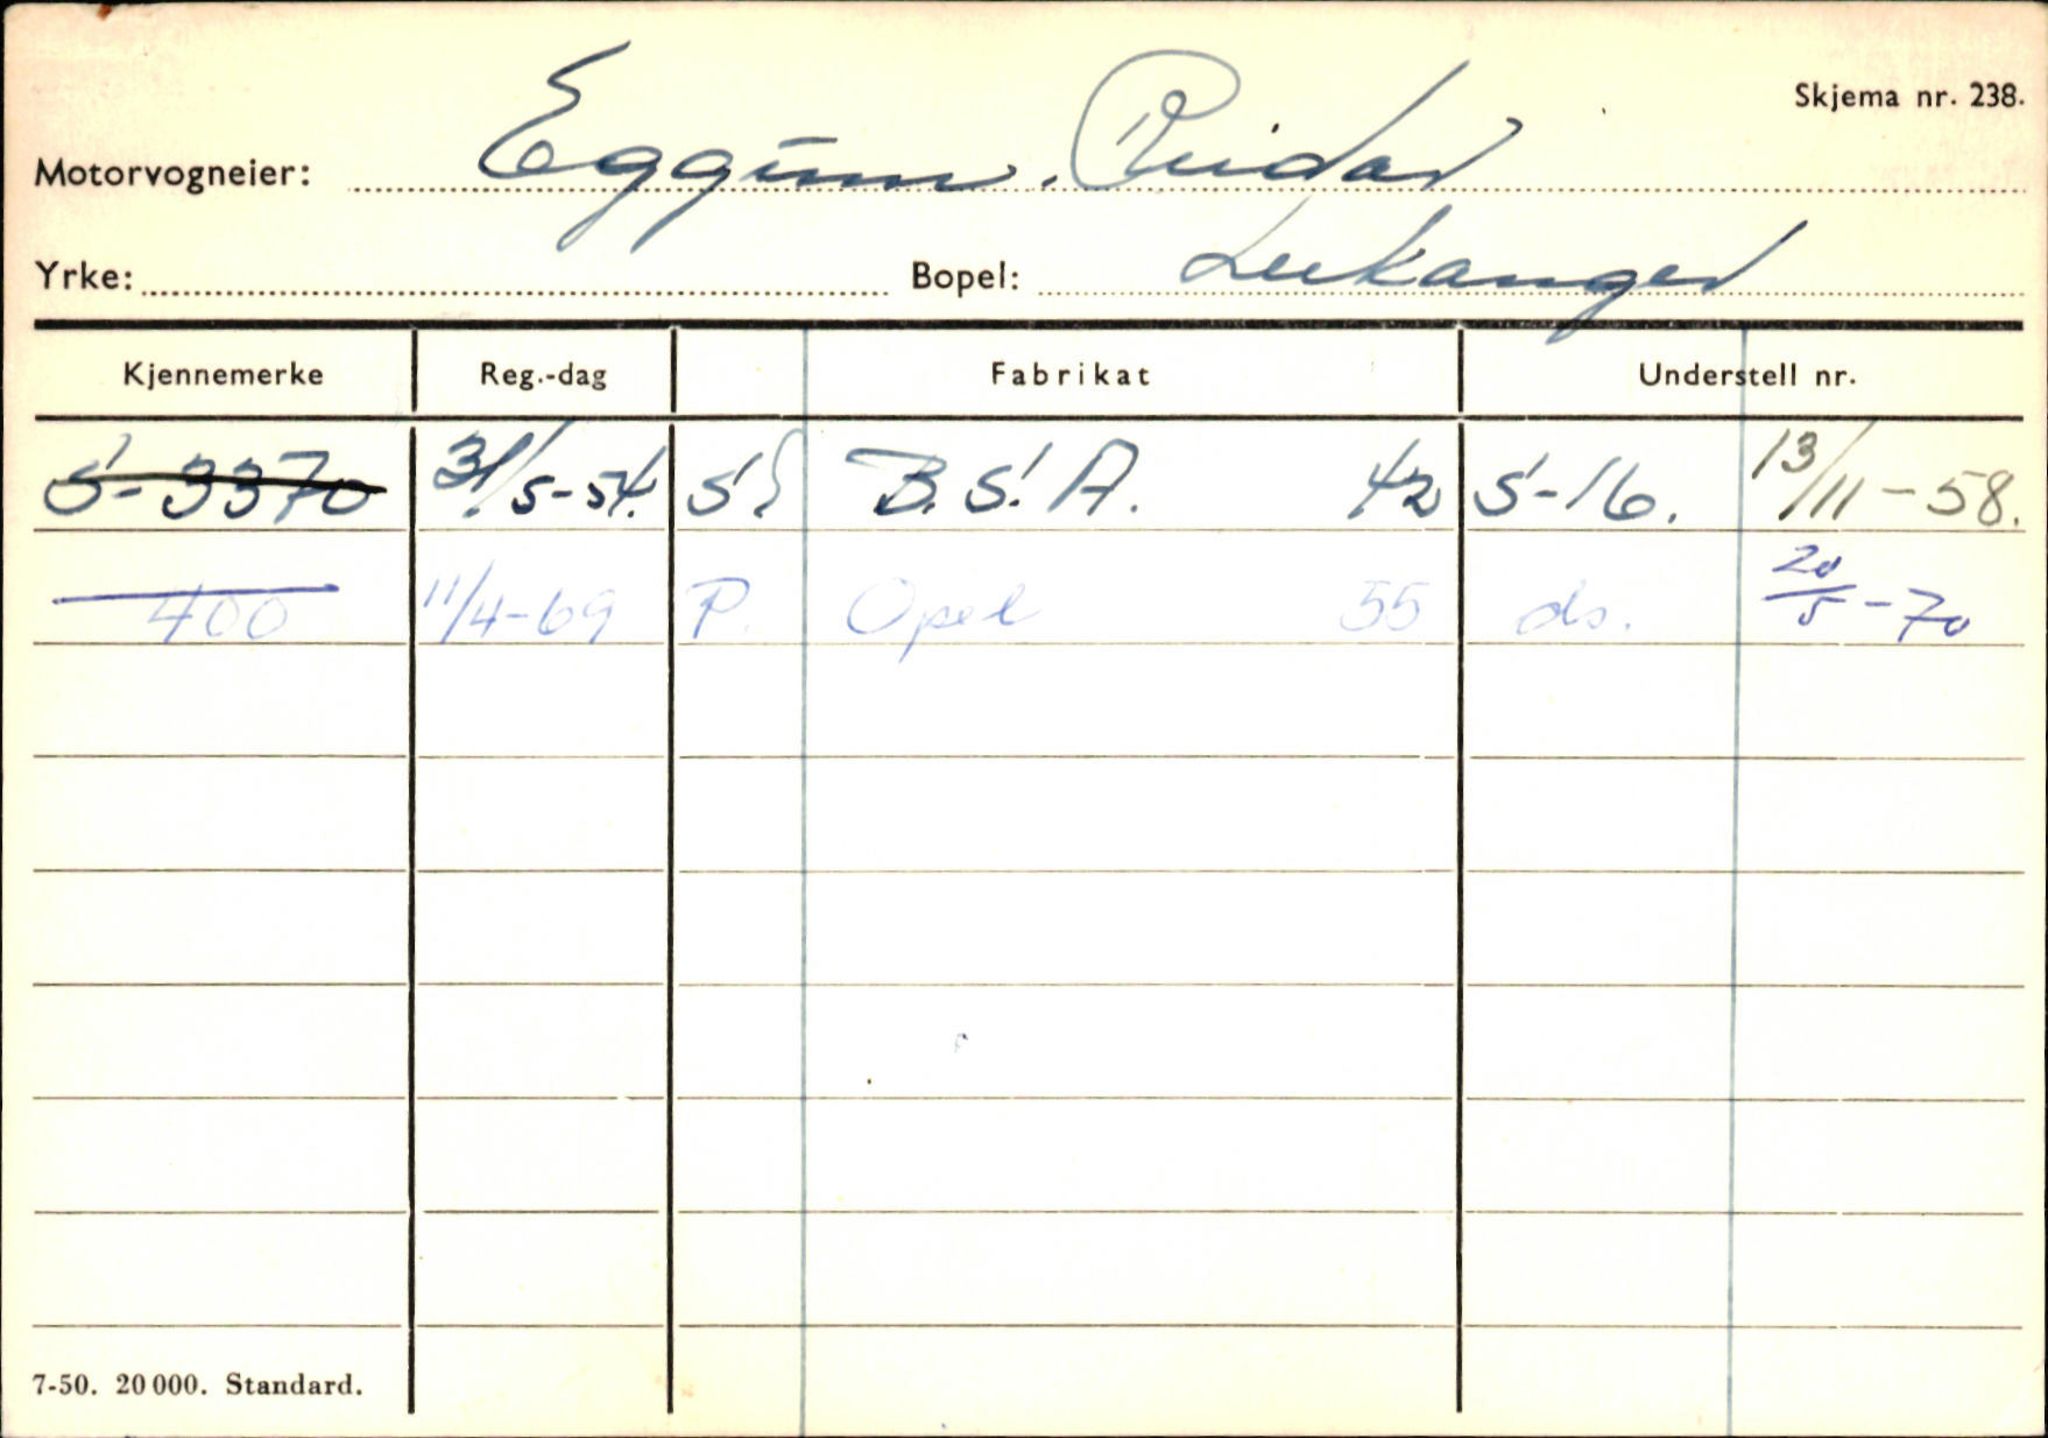 Skjema nr. 238.
Motorvogneier: Eggum. Reidar
Yrke: Bopel: Leikanger
Kjennemerke Reg.-dag Fabrikat Understell nr.
S-3370 31/5-54. S B.S.A. 42 S-16. 13/11-58.
400 11/4-69 P. Opel 55 ds. 20/5-70
7-50. 20 000. Standard.